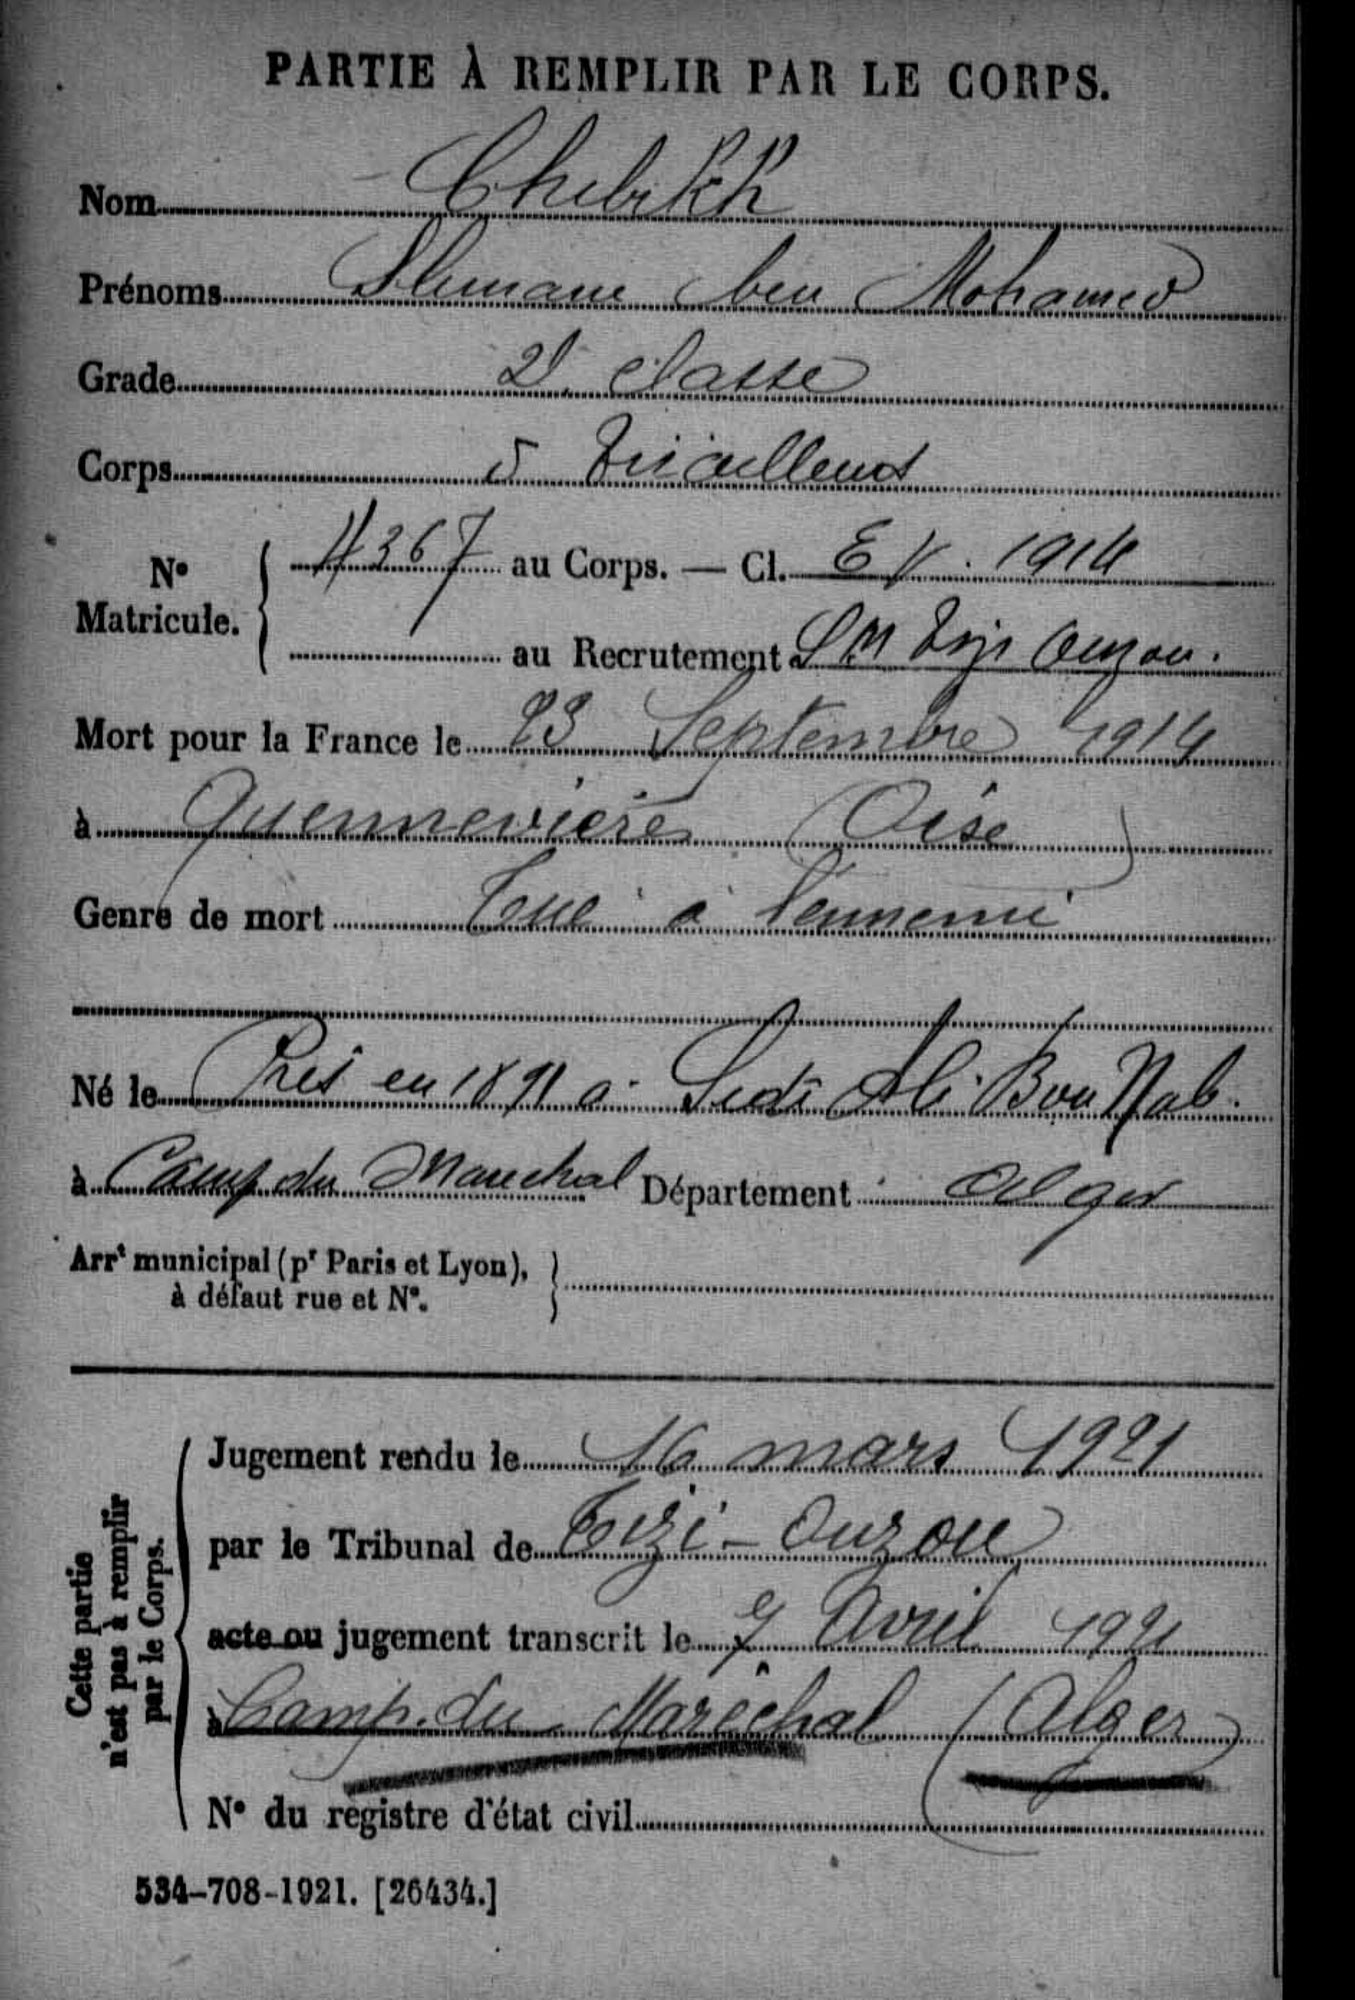 PARTIE À REMPLIR PAR LE CORPS.
Nom Chebikh
Prénoms Slimane ben Mohamed
Grade 2e classe
Corps 5 Tirailleurs
N° Matricule. 4367 au Corps. — Cl. EV. 1914
au Recrutement Tizi Ouzou.
Mort pour la France le 23 Septembre 1914
à Quennevières (Oise)
Genre de mort Tué à l'ennemi
Né le Prés en 1891 à Sidi Ali Bou Nab.
à Camp du Maréchal Département Alger
Arrt municipal (pr Paris et Lyon),
à défaut rue et N°.
Cette partie
n'est pas à remplir
par le Corps.
Jugement rendu le 16 mars 1921
par le Tribunal de Tizi-Ouzou
acte ou jugement transcrit le 7 Avril 1921
à Camp-du-Maréchal (Alger)
N° du registre d'état civil
534-708-1921. [26434.]